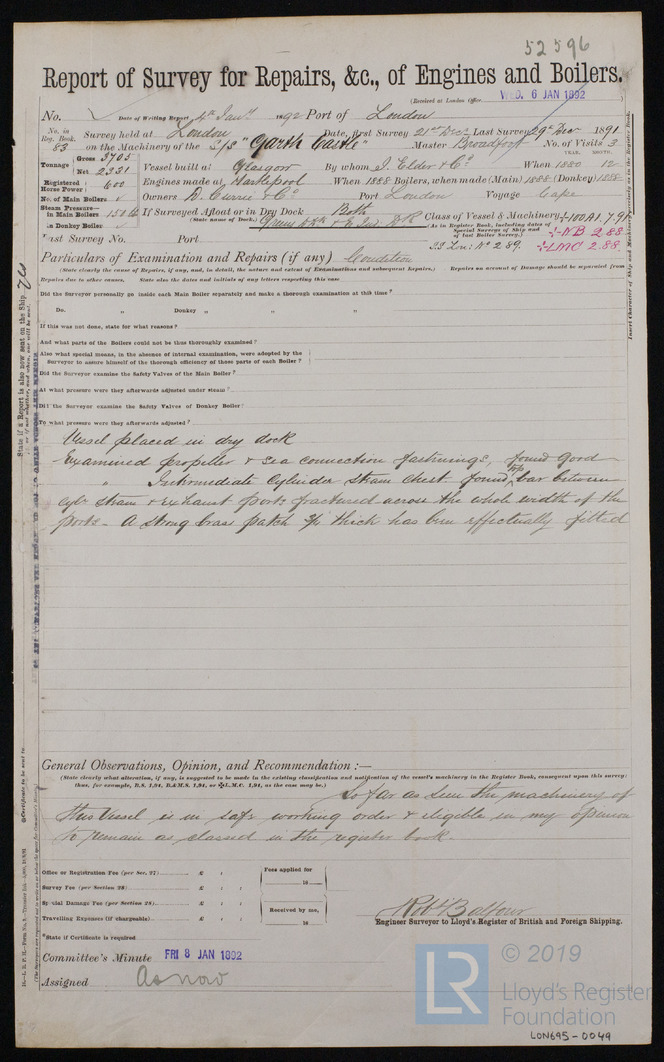 52596
Report of Survey for Repairs, &c., of Engines and Boilers.
(Received at London Office WED. 6 JAN 1892
No. Date of Writing Report 4th Jany 1892 Port of London
No. in Reg. Book. 83 Survey held at London Date, first Survey 21st Decr Last Survey 29 Decr 1891
on the Machinery of the S/S "Garth Castle" Master Broadfoot No. of Visits 3
YEAR. MONTH.
Tonnage Gross 3705 Net 2331 Vessel built at Glasgow By whom J. Elder & Co. When 1880 12
Registered Horse Power 600 Engines made at Hartlepool When 1888 Boilers, when made (Main) 1888 (Donkey) 1888
No. of Main Boilers Owners D. Currie & Co. Port London Voyage Cape
Steam Pressure— in Main Boilers 150 lb If Surveyed Afloat or in Dry Dock Both
(State name of Dock.) Greens & E. Ind. Dk Class of Vessel & Machinery +100A1.7.91
in Donkey Boiler (As in Register Book, including dates of Special Surveys of Ship and of last Boiler Survey.) +NB 2.88
Last Survey No. Port SS Ln: No 2 89. +LMC 2.88
Particulars of Examination and Repairs (if any) Condition
(State clearly the cause of Repairs, if any, and, in detail, the nature and extent of Examinations and subsequent Repairs.) Repairs on account of Damage should be separated from
Repairs due to other causes. State also the dates and initials of any letters respecting this case
Did the Surveyor personally go inside each Main Boiler separately and make a thorough examination at this time?
Do. " Donkey " " "
If this was not done, state for what reasons?
And what parts of the Boilers could not be thus thoroughly examined?
Also what special means, in the absence of internal examination, were adopted by the
Surveyor to assure himself of the thorough efficiency of those parts of each Boiler?
Did the Surveyor examine the Safety Valves of the Main Boiler?
At what pressure were they afterwards adjusted under steam?
Did the Surveyor examine the Safety Valves of Donkey Boiler?
To what pressure were they afterwards adjusted?
Vessel placed in dry dock
Examined propeller & sea connection fastnings, found good
" Intermediate Cylinder steam chest found top bar between
cylr steam & exhaust ports fractured across the whole width of the
ports - A strong brass patch thick has been effectually fitted
General Observations, Opinion, and Recommendation :—
(State clearly what alteration, if any, is suggested to be made in the existing classification and notification of the vessel's machinery in the Register Book, consequent upon this survey;
thus, for example, B.S. 1,91, B.&M.S. 1,91, or +L.M.C. 1,91, as the case may be.)
So far as seen the machinery of
this Vessel is in safe working order & eligible in my opinion
to remain as classed in the register book
Office or Registration Fee (per Sec. 27) £ : : Fees applied for
Survey Fee (per Section 28) £ : : 18
Special Damage Fee (per Section 28) £ : : Received by me,
Travelling Expenses (if chargeable) £ : : 18
Robt Balfour
Engineer Surveyor to Lloyd's Register of British and Foreign Shipping.
*State if Certificate is required
Committee's Minute FRI 8 JAN 1892
Assigned As now
State if a Report is also now sent on the Ship. Yes
Insert Character of Ship and Machinery precisely as in the Register Book.
LR © 2019
Lloyd's Register
Foundation
LON695-0049